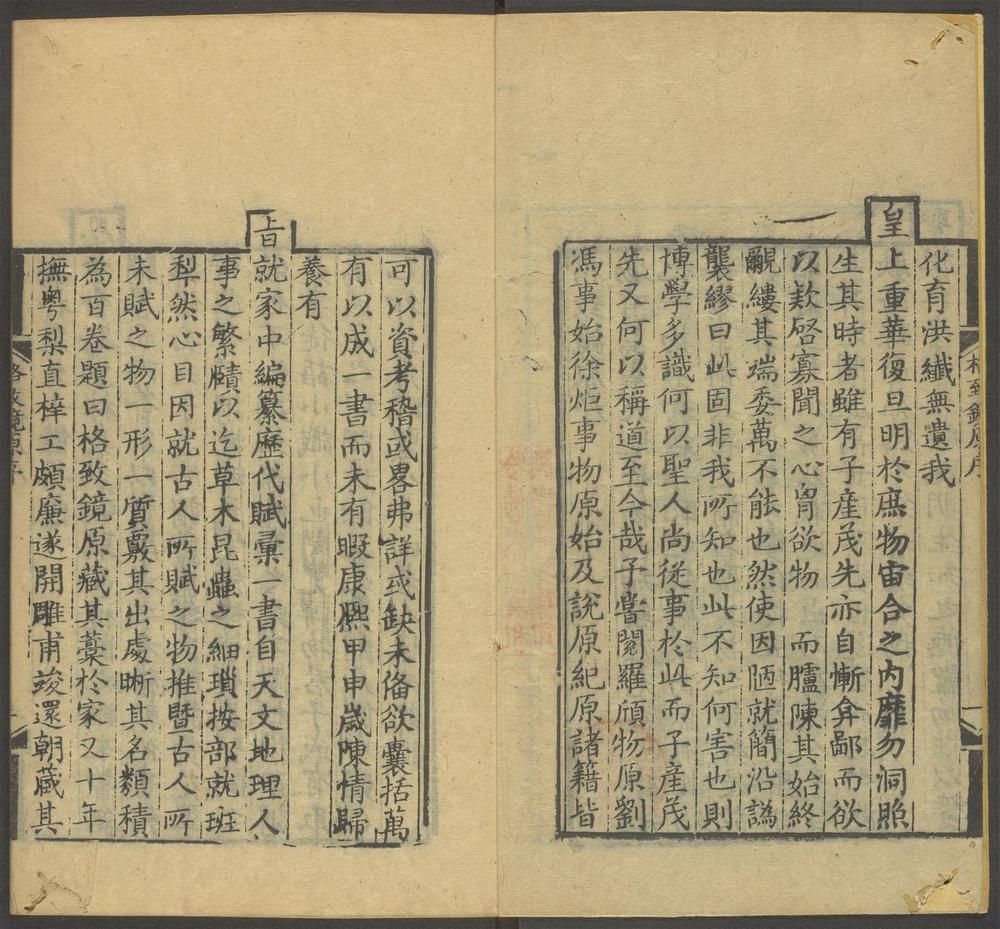 格致鏡原序
化育洪纖無遺我
皇上重華復旦明於庶物宙合之内靡勿洞照
生其時者雖有子產茂先亦自慚弇鄙而欲
以欵啓寡聞之心胷欲物而臚陳其始終
覼縷其端委萬不能也然使因陋就簡沿譌
襲繆曰此固非我所知也此不知何害也則
博學多識何以聖人尚從事於此而子產茂
先又何以稱道至今哉予嘗閱羅頎物原劉
馮事始徐炬事物原始及說原紀原諸籍皆
可以資考稽或畧弗詳或缺未俻欲囊括萬
有以成一書而未有暇康熙甲申嵗陳情歸
養有
旨就家中編纂歷代賦彙一書自天文地理人
事之繁賾以迄草木昆蟲之細瑣按部就班
犁然心目因就古人所賦之物推暨古人所
未賦之物一形一質覈其出處晰其名類積
為百卷題曰格致鏡原藏其藁於家又十年
撫粤梨直梓工頗廉遂開雕甫竣還朝蕆其
格致鏡原序